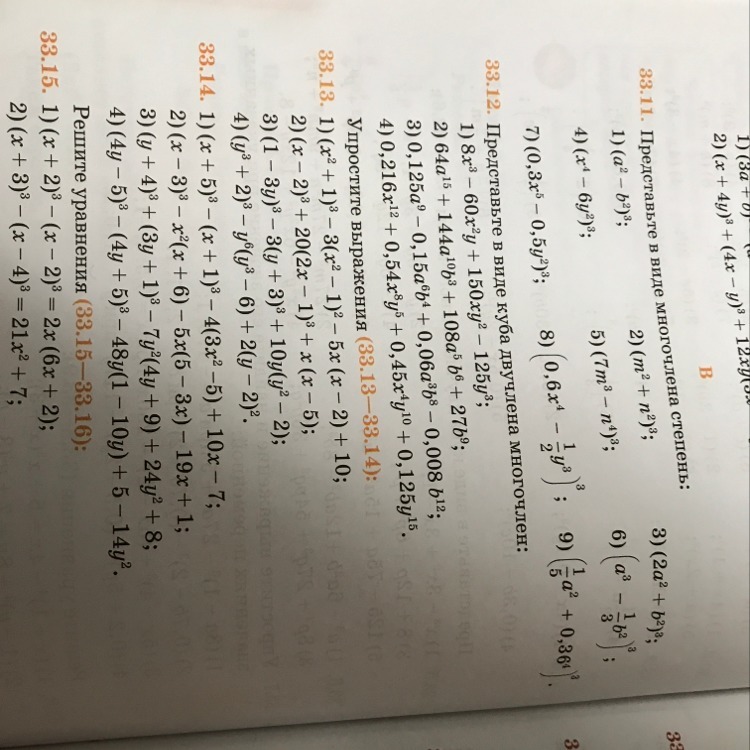 1) (3a + b
2) (x + 4y)³ + (4x − y)³ + 12xy(
В
33.11. Представьте в виде многочлена степень:
1) (a² − b²)³; 2) (m² + n²)³; 3) (2a² + b²)³;
4) (x⁴ − 6y²)³; 5) (7m³ − n⁴)³; 6) (a³ − 1/3 b²)³;
7) (0,3x⁵ − 0,5y²)³; 8) (0,6x⁴ − 1/2 y³)³; 9) (1/5 a² + 0,36⁴)³.
33.12. Представьте в виде куба двучлена многочлен:
1) 8x³ − 60x²y + 150xy² − 125y³;
2) 64a¹⁵ + 144a¹⁰b³ + 108a⁵ b⁶ + 27b⁹;
3) 0,125a⁹ − 0,15a⁶b⁴ + 0,06a³b⁸ − 0,008 b¹²;
4) 0,216x¹² + 0,54x⁸y⁵ + 0,45x⁴y¹⁰ + 0,125y¹⁵.
Упростите выражения (33.13—33.14):
33.13. 1) (x² + 1)³ − 3(x² − 1)² − 5x (x − 2) + 10;
2) (x − 2)³ + 20(2x − 1)³ + x (x − 5);
3) (1 − 3y)³ − 3(y + 3)³ + 10y(y² − 2);
4) (y³ + 2)³ − y⁶(y³ − 6) + 2(y − 2)².
33.14. 1) (x + 5)³ − (x + 1)³ − 4(3x² −5) + 10x − 7;
2) (x − 3)³ − x²(x + 6) − 5x(5 − 3x) − 19x + 1;
3) (y + 4)³ + (3y + 1)³ − 7y²(4y + 9) + 24y² + 8;
4) (4y − 5)³ − (4y + 5)³ − 48y(1 − 10y) + 5 − 14y².
Решите уравнения (33.15—33.16):
33.15. 1) (x + 2)³ − (x − 2)³ = 2x (6x + 2);
2) (x + 3)³ − (x − 4)³ = 21x² + 7;